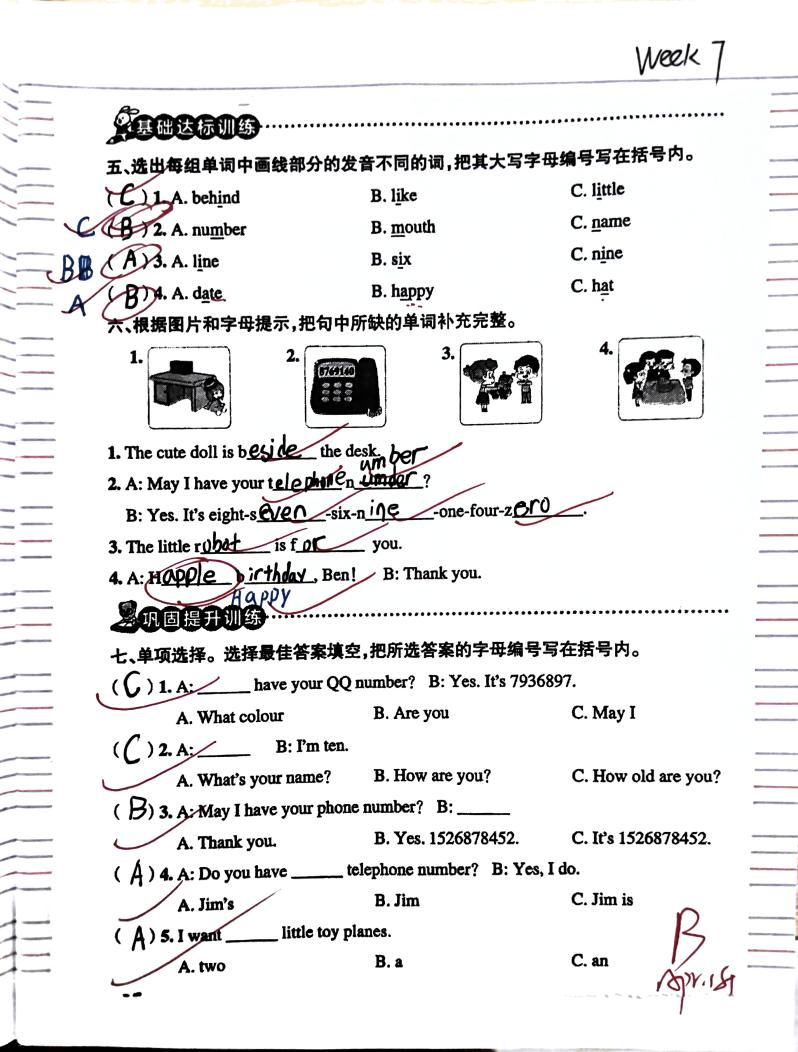 Week 7
基础达标训练
五、选出每组单词中画线部分的发音不同的词,把其大写字母编号写在括号内。
( C ) 1. A. behind B. like C. little
C ( B ) 2. A. number B. mouth C. name
B ( A ) 3. A. line B. six C. nine
A ( B ) 4. A. date B. happy C. hat
六、根据图片和字母提示,把句中所缺的单词补充完整。
1. 2. 3. 4.
8769140
1. The cute doll is beside the desk.
umber
2. A: May I have your telephone n ?
B: Yes. It's eight-seven-six-nine-one-four-zero.
3. The little robot is for you.
4. A: Happle birthday, Ben! B: Thank you.
Happy
巩固提升训练
七、单项选择。选择最佳答案填空,把所选答案的字母编号写在括号内。
( C ) 1. A: ______ have your QQ number? B: Yes. It's 7936897.
A. What colour B. Are you C. May I
( C ) 2. A: ______ B: I'm ten.
A. What's your name? B. How are you? C. How old are you?
( B ) 3. A: May I have your phone number? B: ______
A. Thank you. B. Yes. 1526878452. C. It's 1526878452.
( A ) 4. A: Do you have ______ telephone number? B: Yes, I do.
A. Jim's B. Jim C. Jim is
( A ) 5. I want ______ little toy planes.
A. two B. a C. an
B
Apr. 1st